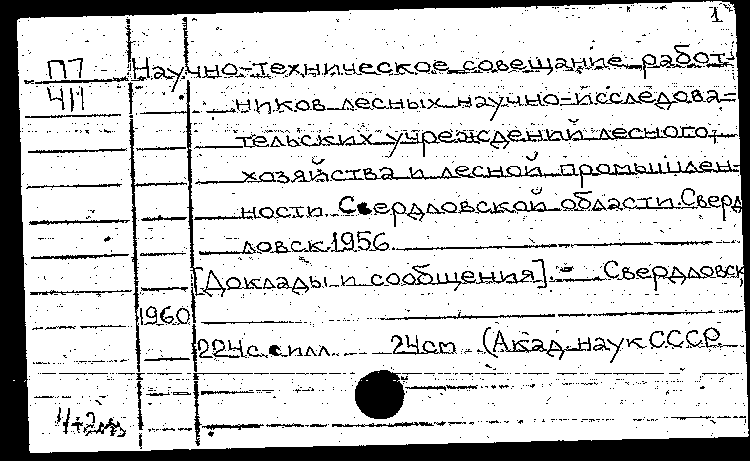 1
П7 Научно-техническое совещание работ-
411 ников лесных научно-исследова-
тельских учреждений лесного
хозяйства и лесной промышлен-
ности Свердловской области. Сверд
ловск. 1956.
[Доклады и сообщения]. - Свердловск
1960
224с. с илл. 24см (Акад. наук СССР.